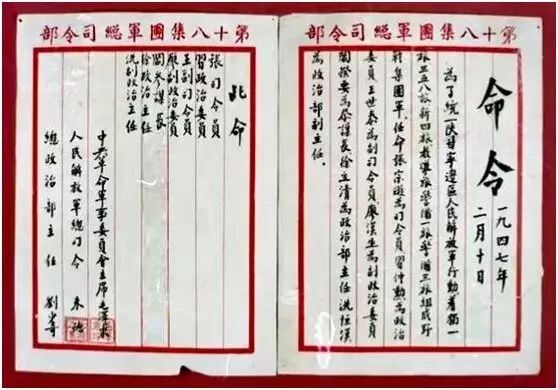 第十八集團軍總司令部
命令
一九四七年
二月十日
為了統一陕甘寧邊区人民解放軍行動着獨一
旅三五八旅新四旅教導旅警備一旅警備三旅組成野
战集團軍。任命張宗遜為司令員習仲勳為政治
委員王世泰為副司令員廖漢生為副政治委員
閻揆要為参謀長徐立清為政治部主任冼恒漢
為政治部副主任。
第十八集團軍總司令部
此命
張司令員
習政治委員
王副司令員
廖副政治委員
閻参謀長
徐政治主任
冼副政治主任
中央革命軍事委員會主席毛澤東
人民解放軍總司令 朱德
總政治部主任 劉少奇